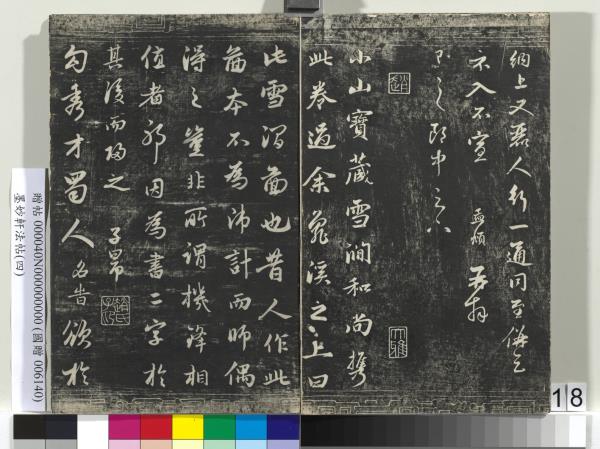 網上又
人行一通同至
示入不宣
孟頫
郎中
小山寶藏雪澗和尚携
此卷過余苕溪之上曰
此雪澗畫也昔人作此
畵本不為沛計而師偶
得之豈非所謂機鋒相
值者邪因為書二字於
其後而歸之 子昂
勾秀才蜀人名 欲於
贈帖 000040N000000000 (國贈 006140)
墨妙軒法帖(四)
18